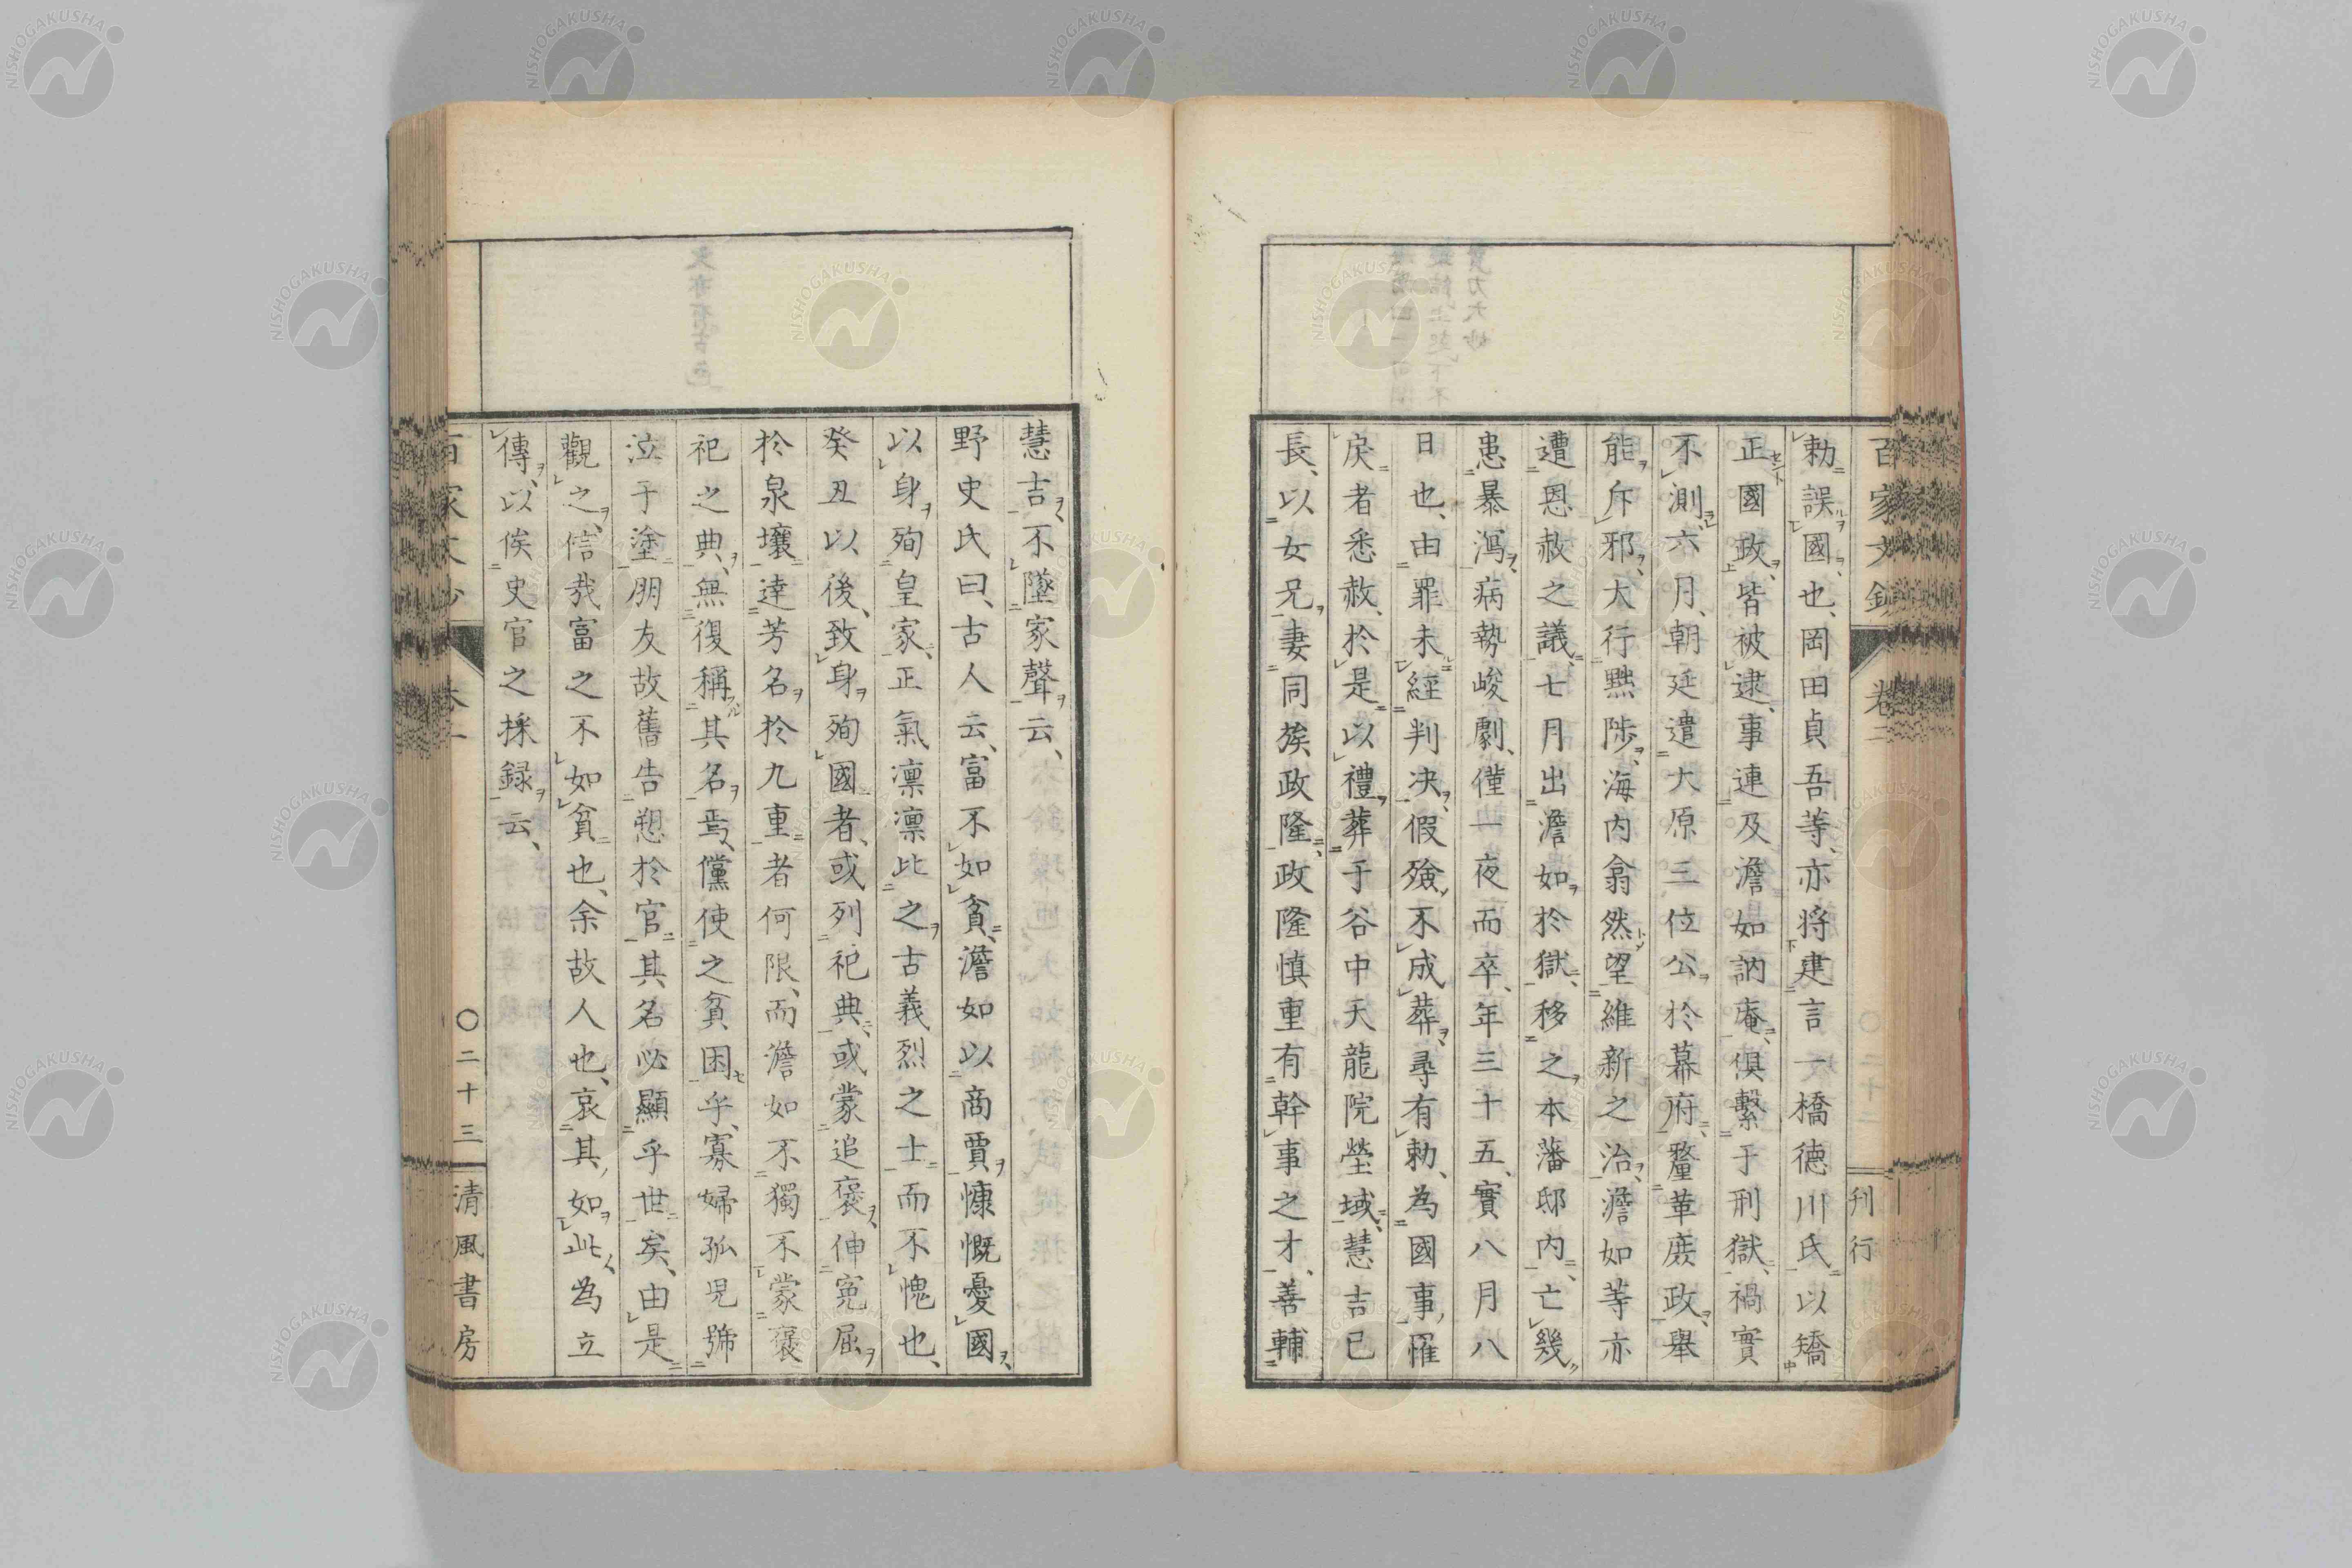 百家文鈔 卷二 刊行
勅誤國也、岡田貞吾等、亦将建言一橋德川氏以矯
正國政、皆被逮、事連及澹如訥庵、俱繫于刑獄、禍實
不測、六月、朝廷遣大原三位公於幕府、釐革庶政、舉
能斥邪、大行黜陟、海內翕然望維新之治、澹如等亦
遭恩赦之議、七月出澹如於獄、移之本藩邸內、亡幾
患暴瀉、病勢峻劇、僅一夜而卒、年三十五、實八月八
日也、由罪未經判决、假殮不成葬、尋有勅、為國事罹
戾者悉赦、於是以禮葬于谷中天龍院塋域、慧吉已
長、以女兄妻同族政隆、政隆慎重有幹事之才、善輔
慧吉、不墜家聲云、
野史氏曰、古人云、富不如貧、澹如以商賈慷慨憂國、
以身殉皇家、正氣凛凛比之古義烈之士而不愧也、
癸丑以後、致身殉國者、或列祀典、或蒙追褒、伸冤屈
於泉壤達芳名於九重者何限、而澹如不獨不蒙褒
祀之典、無復稱其名焉、儻使之貧困乎、寡婦孤兒號
泣于塗朋友故舊告愬於官其名必顯乎世矣、由是
觀之、信哉富之不如貧也、余故人也、哀其如此、為立
傳、以俟史官之採録云、
百家文鈔 卷二 〇二十三 清風書房
NISHOGAKUSHA